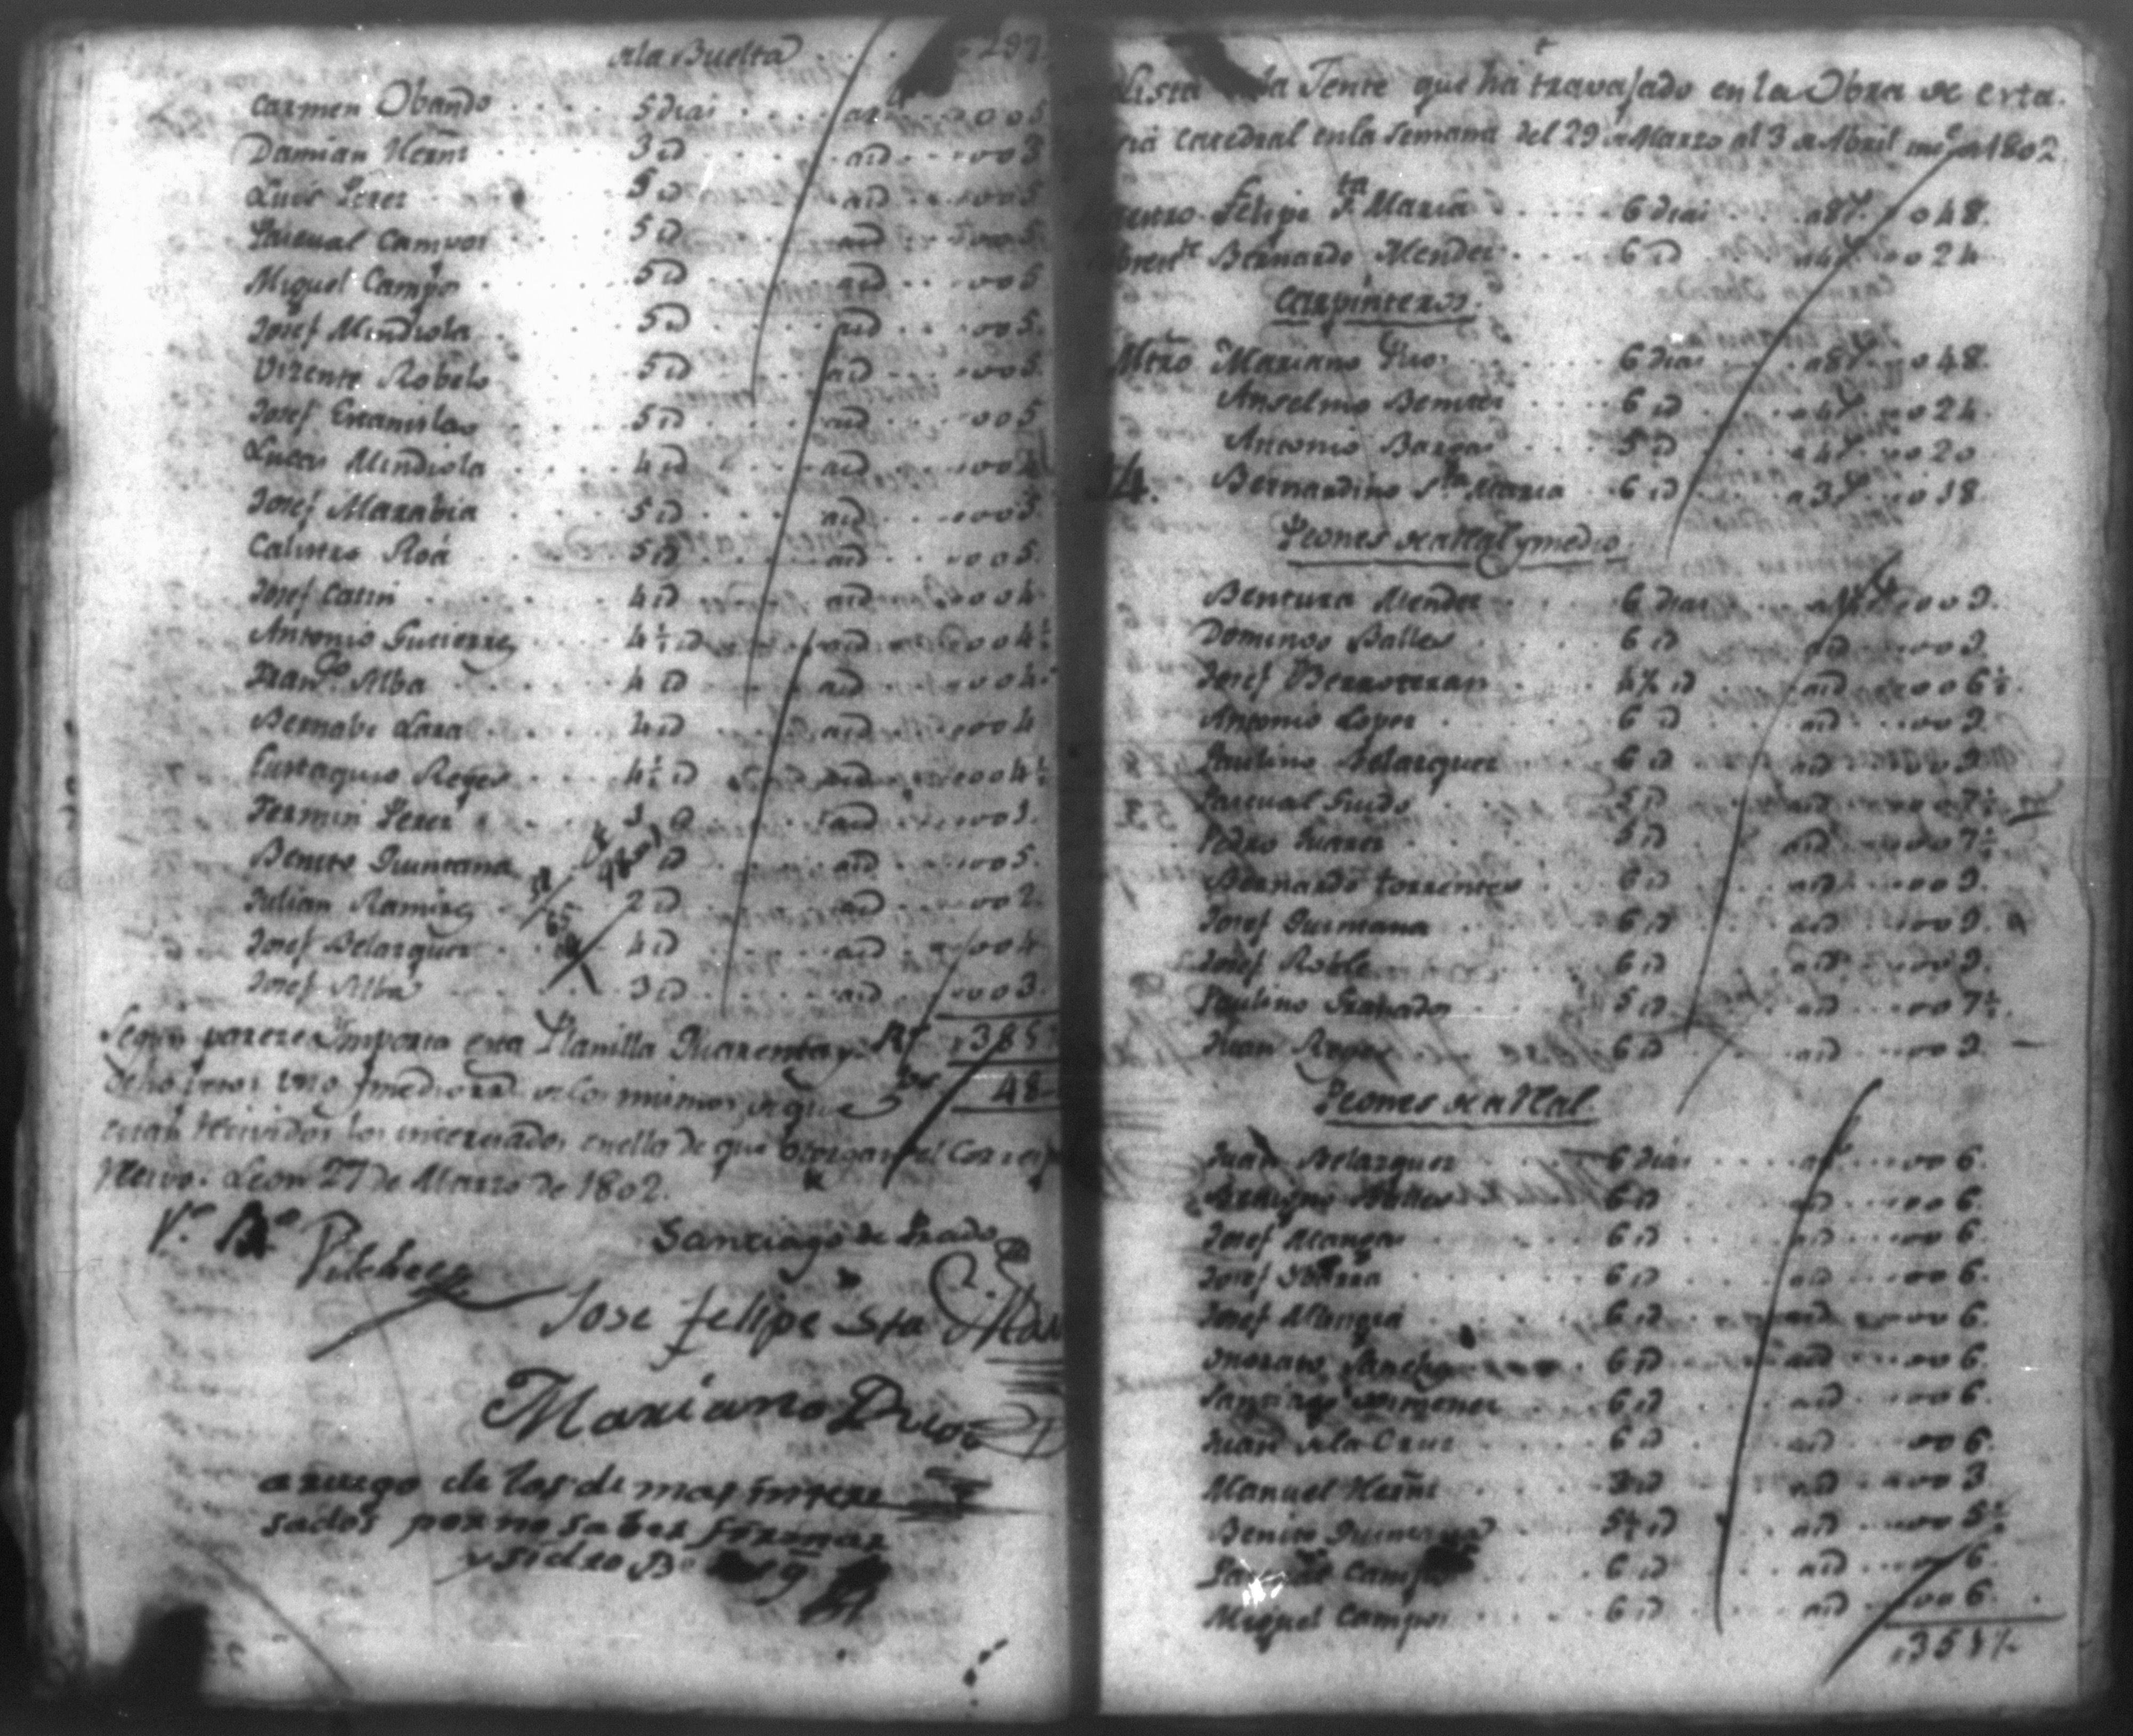 ala Buelta . . . 297
Carmen Obando . . . . 5 dias . . . . a 1 r . . . 005
Damian Hernz . . . . 3 id . . . . aid . . . 003
Luis Perez . . . . 5 id . . . . aid . . . 005
Pascual Campos . . . . 5 id . . . . aid . . . 005
Miguel Campos . . . . 5 id . . . . aid . . . 005
Josef Mindiola . . . . 5 id . . . . aid . . . 005
Vizente Robelo . . . . 5 id . . . . aid . . . 005
Josef Estanislao . . . . 5 id . . . . aid . . . 005
Lucas Mindiola . . . . 4 id . . . . aid . . . 004
Josef Marabia . . . . 5 id . . . . aid . . . 005
Calistro Roá . . . . 5 id . . . . aid . . . 005
Josef Catin . . . . 4 id . . . . aid . . . 004
Antonio Gutierrez . . . . 4½ id . . . . aid . . . 004½
Franco Alba . . . . 4 id . . . . aid . . . 004
Bernabe Lara . . . . 4 id . . . . aid . . . 004
Eustaquio Reyes . . . . 4½ id . . . . aid . . . 004½
Fermin Perez . . . . 3 id . . . . aid . . . 003
Benito Quintana . . . . id . . . . aid . . . 005
Julian Ramirez . . . . 2 id . . . . aid . . . 002
Josef Belazquez . . . . 4 id . . . . aid . . . 004
Josef Alba . . . . 3 id . . . . aid . . . 003
Segun pareze Importa esta Planilla Quarenta y Rs 385
ocho pesos uno y medio rs de los mismos, de que ps 48
estan recividos los interesados en ella de que otorgan el Corresp
Recivo. Leon 27 de Marzo de 1802.
Vo Bo Santiago de Prado
Vilches
Jose felipe Sta Mar
Mariano Prior
a ruego de los de mas intere
sados por no saber firmar
ysidro Bo
Lista la Jente que ha travajado en la Obra de esta
Catedral en la Semana del 29 de Marzo al 3 de Abril de 1802
Maestro Felipe Sta Maria . . . . 6 dias . . . a 8 r . . 048
Bernardo Mendez . . . . 6 id . . . a 4 r . . 024
Carpinteros.
Mtro Mariano Prior . . . . 6 dias . . . a 8 r . . 048
Anselmo Benites . . . . 6 id . . . a 4 r . . 024
Antonio Bargas . . . . 5 id . . . a 4 r . . 020
Bernardino Sta Maria . . 6 id . . . a 3 r . . 018
Peones de a Real y medio
Bentura Mendez . . . . 6 dias . . . a 1½ r . . 009
Domingo Balles . . . . 6 id . . . aid . . 009
Josef Berroteran . . . . 4½ id . . . aid . . 006½
Antonio Lopez . . . . 6 id . . . aid . . 009
Paulino Belazquez . . . . 6 id . . . aid . . 009
Pascual Guido . . . . 5 id . . . aid . . 007½
Pedro Juarez . . . . 5 id . . . aid . . 007½
Bernardo torrentes . . . . 6 id . . . aid . . 009
Josef Quintana . . . . 6 id . . . aid . . 009
Josef Roble . . . . 6 id . . . aid . . 009
Paulino Granados . . . . 5 id . . . aid . . 007½
Juan Reyes . . . . 6 id . . . aid . . 009
Peones de a Real.
Juan Belazquez . . . . 6 dias . . . a 1 r . . 006
Balles . . . . 6 id . . . aid . . 006
Josef Manga . . . . 6 id . . . aid . . 006
Josef Ybarra . . . . 6 id . . . aid . . 006
Josef Munguia . . . . 6 id . . . aid . . 006
Onorato Sancho . . . . 6 id . . . aid . . 006
Santiago Ximenez . . . . 6 id . . . aid . . 006
Juan de la Cruz . . . . 6 id . . . aid . . 006
Manuel Hernz . . . . 3 id . . . aid . . 003
Benito Quintana . . . . 5½ id . . . aid . . 005½
Pascual Campos . . . . 6 id . . . aid . . 006
Miguel Campos . . . . 6 id . . . aid . . 006
351½